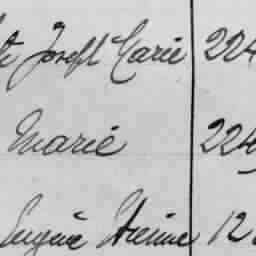 Joseph Marie 224
Marie 224
Eugène Etienne 12